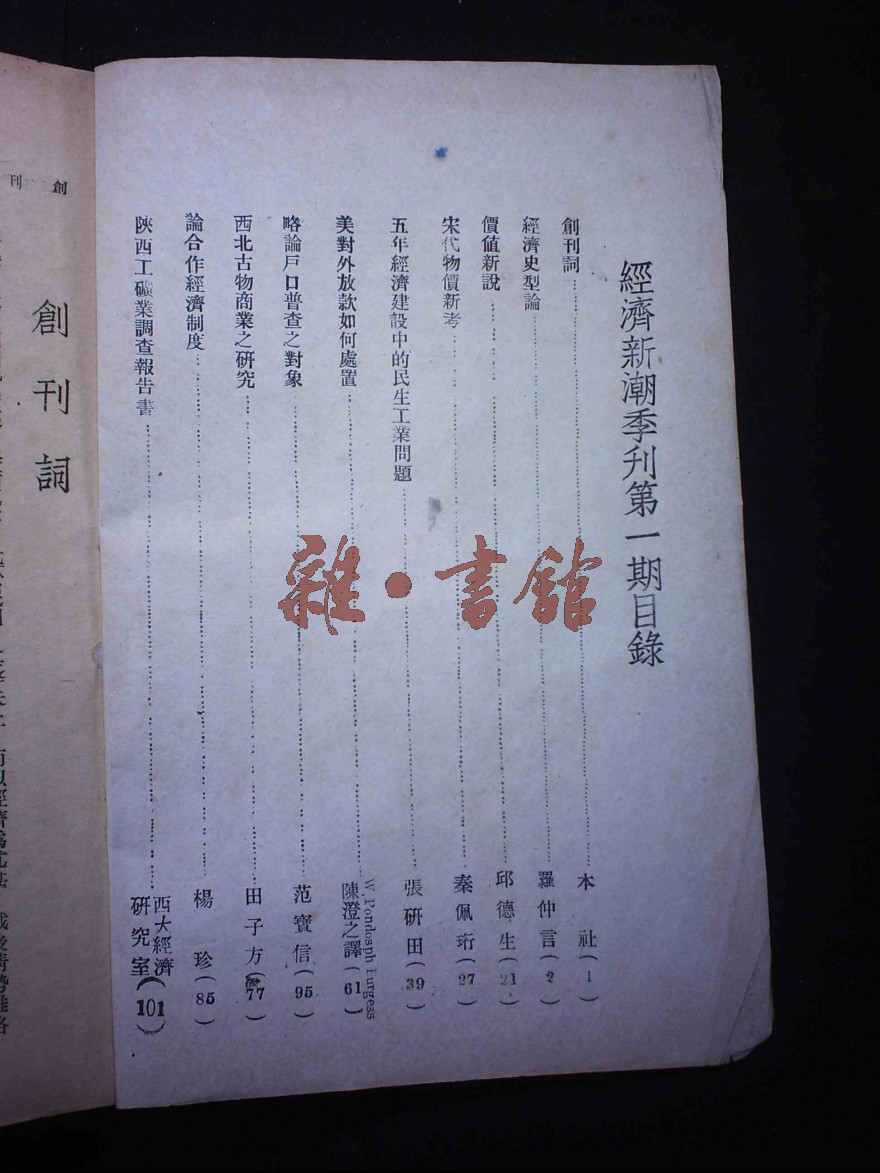 經濟新潮季刋第一期目錄
創刊詞……本社(1)
經濟史型論……羅仲言(2)
價值新說……邱德生(21)
宋代物價新考……秦佩珩(27)
五年經濟建設中的民生工業問題……張研田(39)
美對外放款如何處置……W Pondosph Furgess 陳澄之譯(61)
略論戶口普查之對象……范寶信(95)
西北古物商業之研究……田子方(77)
論合作經濟制度……楊珍(85)
陜西工礦業調查報告書……西大經濟研究室(101)
創刊
創刊詞
雜·書館